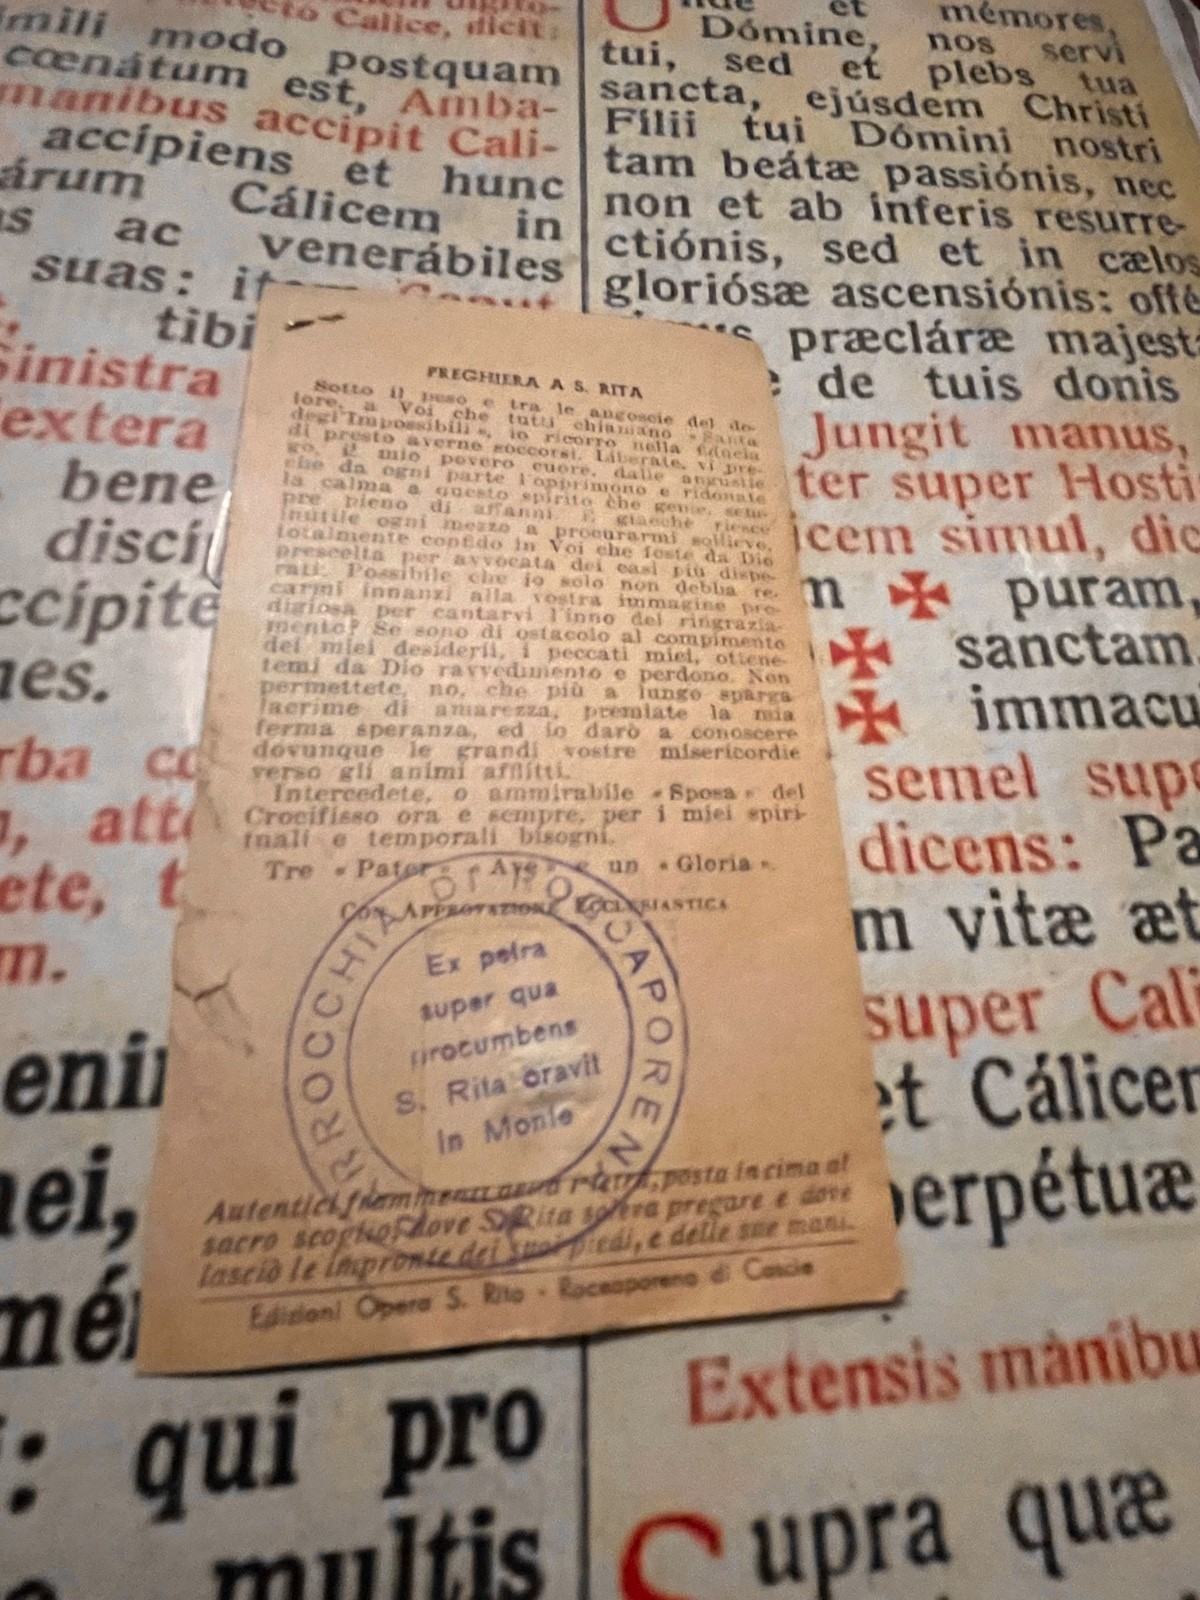 mili modo postquam
cœnátum est, Amba-
manibus accipit Cali-
accípiens et hunc
Cálicem in
ac venerábiles
suas:
tibi
Sinistra
extera
bene
ccípite
enim
mei,
qui pro
multis
et mémores,
Dómine, nos servi
tui, sed et plebs tua
sancta, ejúsdem Christi
Fílii tui Dómini nostri
tam beátæ passiónis, nec
non et ab ínferis resurre-
ctiónis, sed et in cælos
gloriósæ ascensiónis: offé
præcláræ majest
de tuis donis
Jungit manus,
ter super Hosti
icem simul, dic
✠ puram,
✠ sanctam,
✠ immacu
semel sup
dicens: Pa
vitæ æt
super Cali
et Cálicem
perpétuæ
Extensis manibu
Supra quæ
PREGHIERA A S. RITA
Sotto il peso e tra le angoscie del do-
lore, a Voi che tutti chiamano « Santa
degl'Impossibili », io ricorro nella fiducia
di presto averne soccorsi. Liberate, vi pre-
go, il mio povero cuore, dalle angustie
che da ogni parte l'opprimono e ridonate
la calma a questo spirito che geme, sem-
pre pieno di affanni. E giacchè riesce
inutile ogni mezzo a procurarmi sollievo,
totalmente confido in Voi che foste da Dio
prescelta per avvocata dei casi più dispe-
rati. Possibile che io solo non debba re-
carmi innanzi alla vostra immagine pro-
digiosa per cantarvi l'inno del ringrazia-
mento? Se sono di ostacolo al compimento
dei miei desiderii, i peccati miei, ottene-
temi da Dio ravvedimento e perdono. Non
permettete, no, che più a lungo sparga
lacrime di amarezza, premiate la mia
ferma speranza, ed io darò a conoscere
dovunque le grandi vostre misericordie
verso gli animi afflitti.
Intercedete, o ammirabile « Sposa » del
Crocifisso ora e sempre, per i miei spiri-
tuali e temporali bisogni.
Tre « Pater » « Ave » e un « Gloria ».
CON APPROVAZIONE ECCLESIASTICA
PARROCCHIA DI ROCCAPORENA
Ex petra
super qua
procumbens
S. Rita oravit
in Monte
Autentici frammenti della pietra, posta in cima al
sacro scoglio, dove S. Rita soleva pregare e dove
lasciò le impronte dei suoi piedi, e delle sue mani.
Edizioni Opera S. Rita - Roccaporena di Cascia